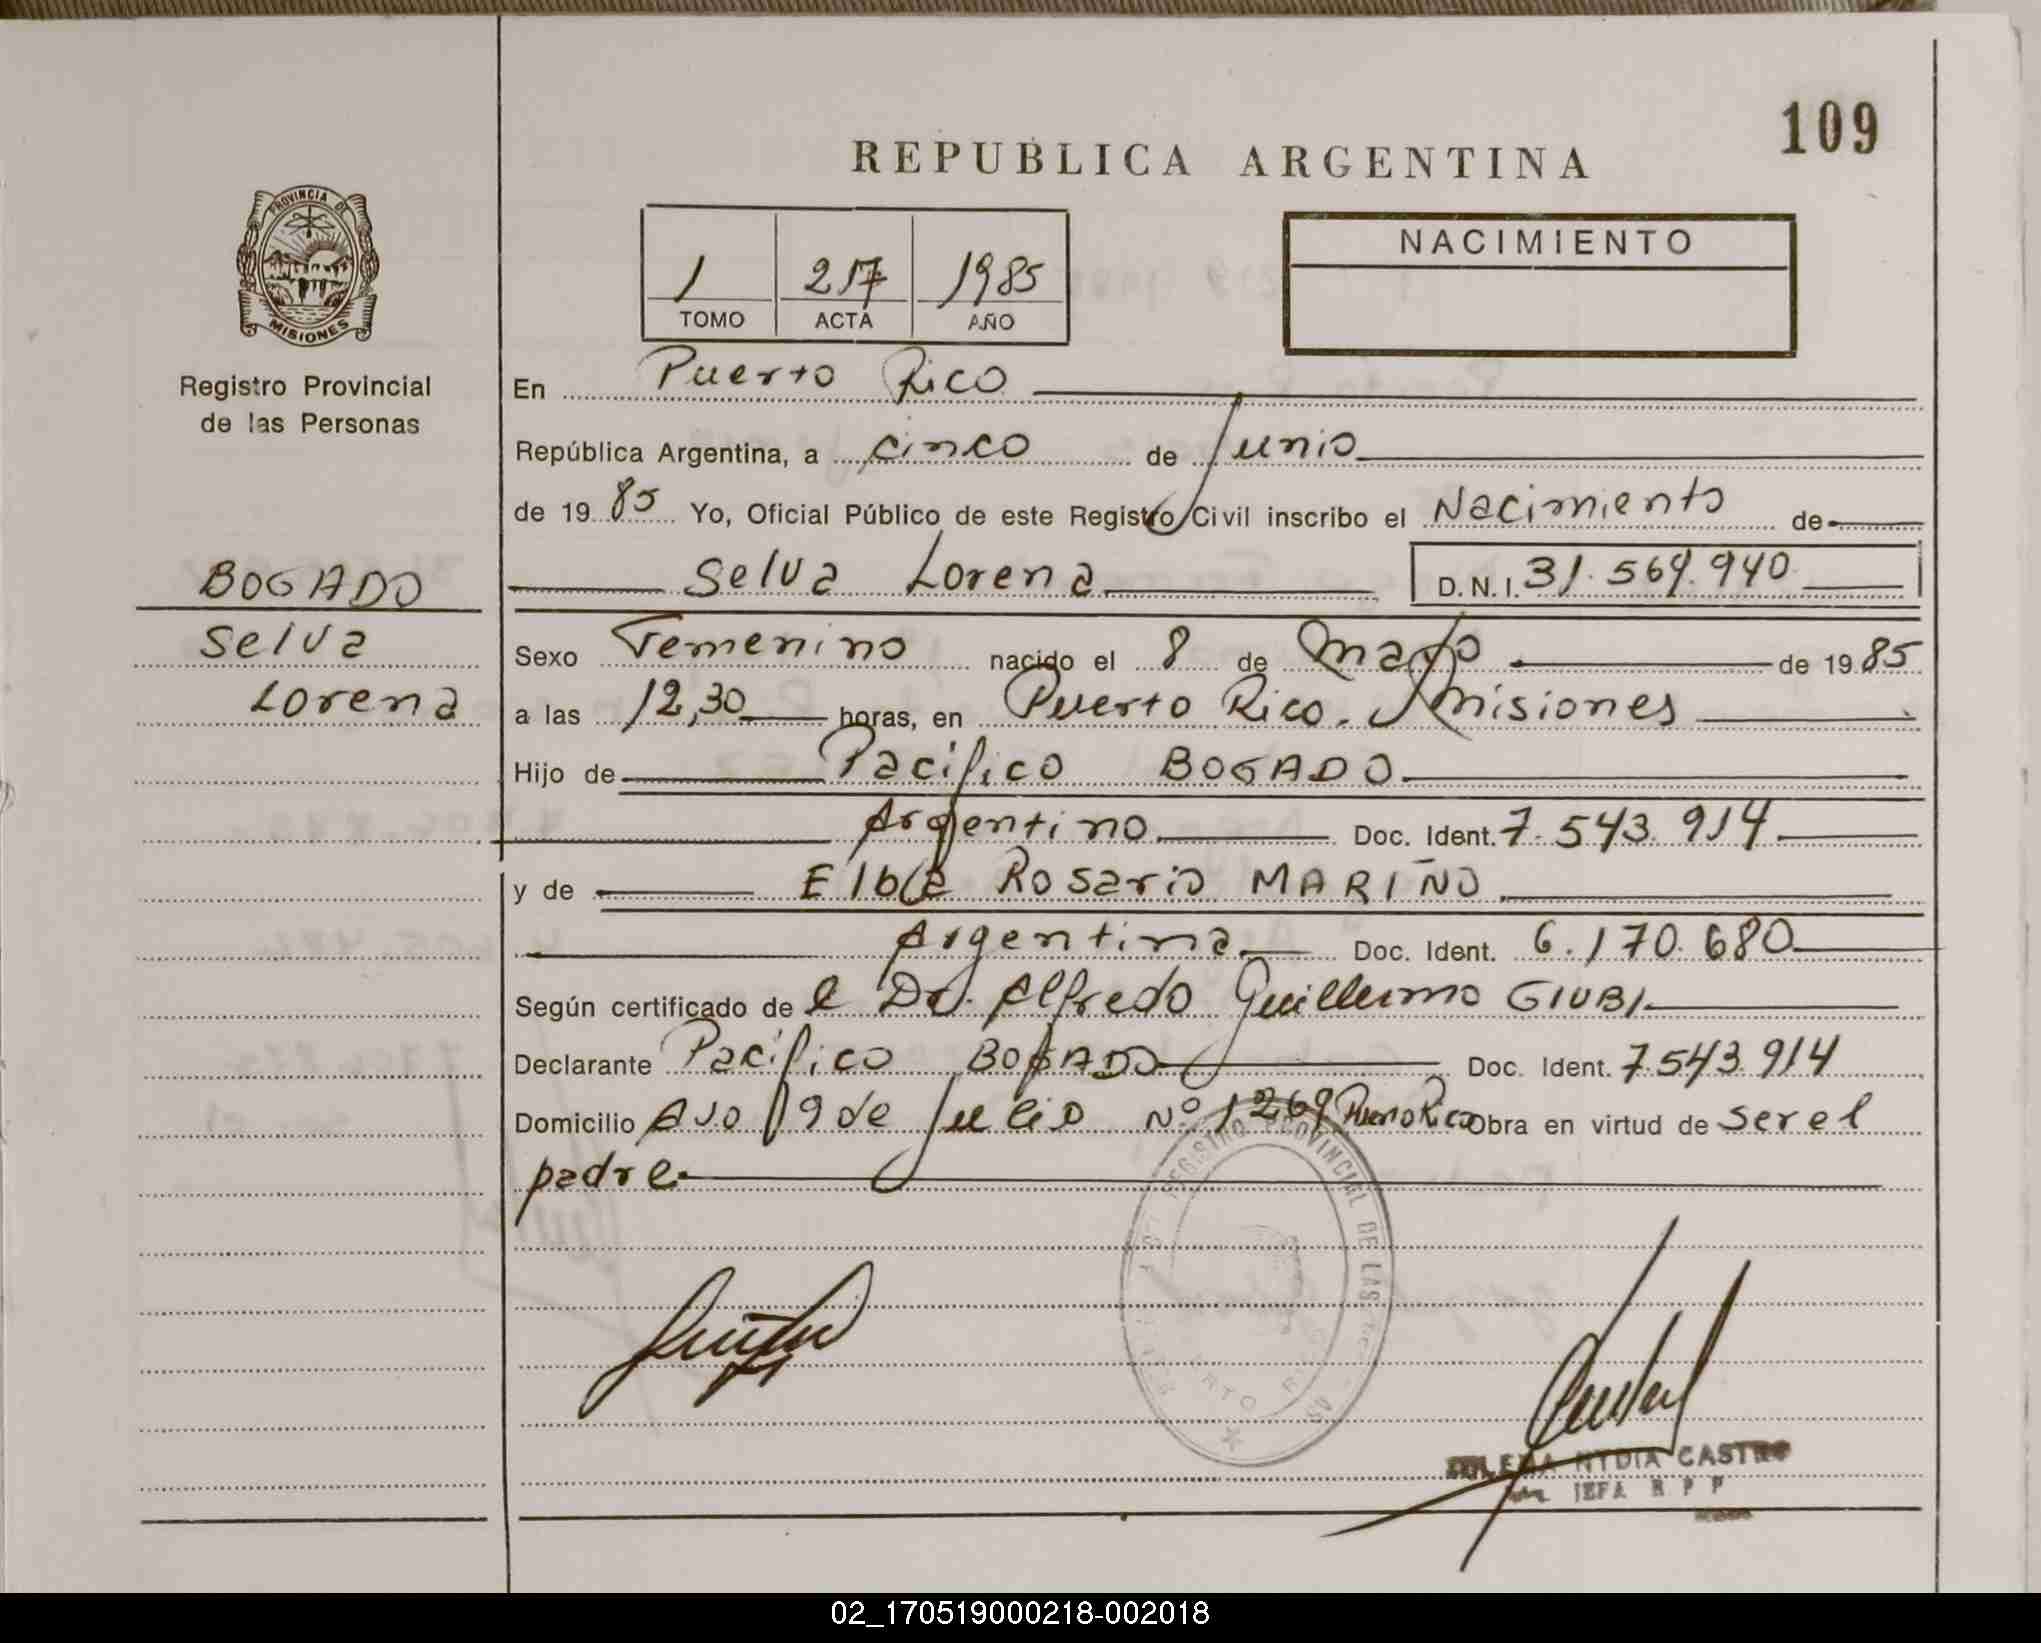 109
REPUBLICA ARGENTINA
PROVINCIA DE
MISIONES
1 217 1985
TOMO ACTA AÑO
NACIMIENTO
Registro Provincial
de las Personas
En Puerto Rico
República Argentina, a cinco de Junio
de 19 85 Yo, Oficial Público de este Registro Civil inscribo el Nacimiento de
Selva Lorena D. N. I. 31.569.940
BOGADO
Selva
Lorena
Sexo Femenino nacido el 8 de Mayo de 19 85
a las 12,30 horas, en Puerto Rico. Misiones
Hijo de Pacífico BOGADO
Argentino Doc. Ident. 7.543.914
y de Elba Rosario MARIÑO
Argentina Doc. Ident. 6.170.680
Según certificado de l Dr. Alfredo Guillermo GIUBI
Declarante Pacífico BOGADO Doc. Ident. 7.543.914
Domicilio Avo 9 de Julio Nº 1269 Puerto Rico Obra en virtud de ser el
padre
REGISTRO PROVINCIAL DE LAS
NYDIA CASTRO
JEFA R P P
02_170519000218-002018